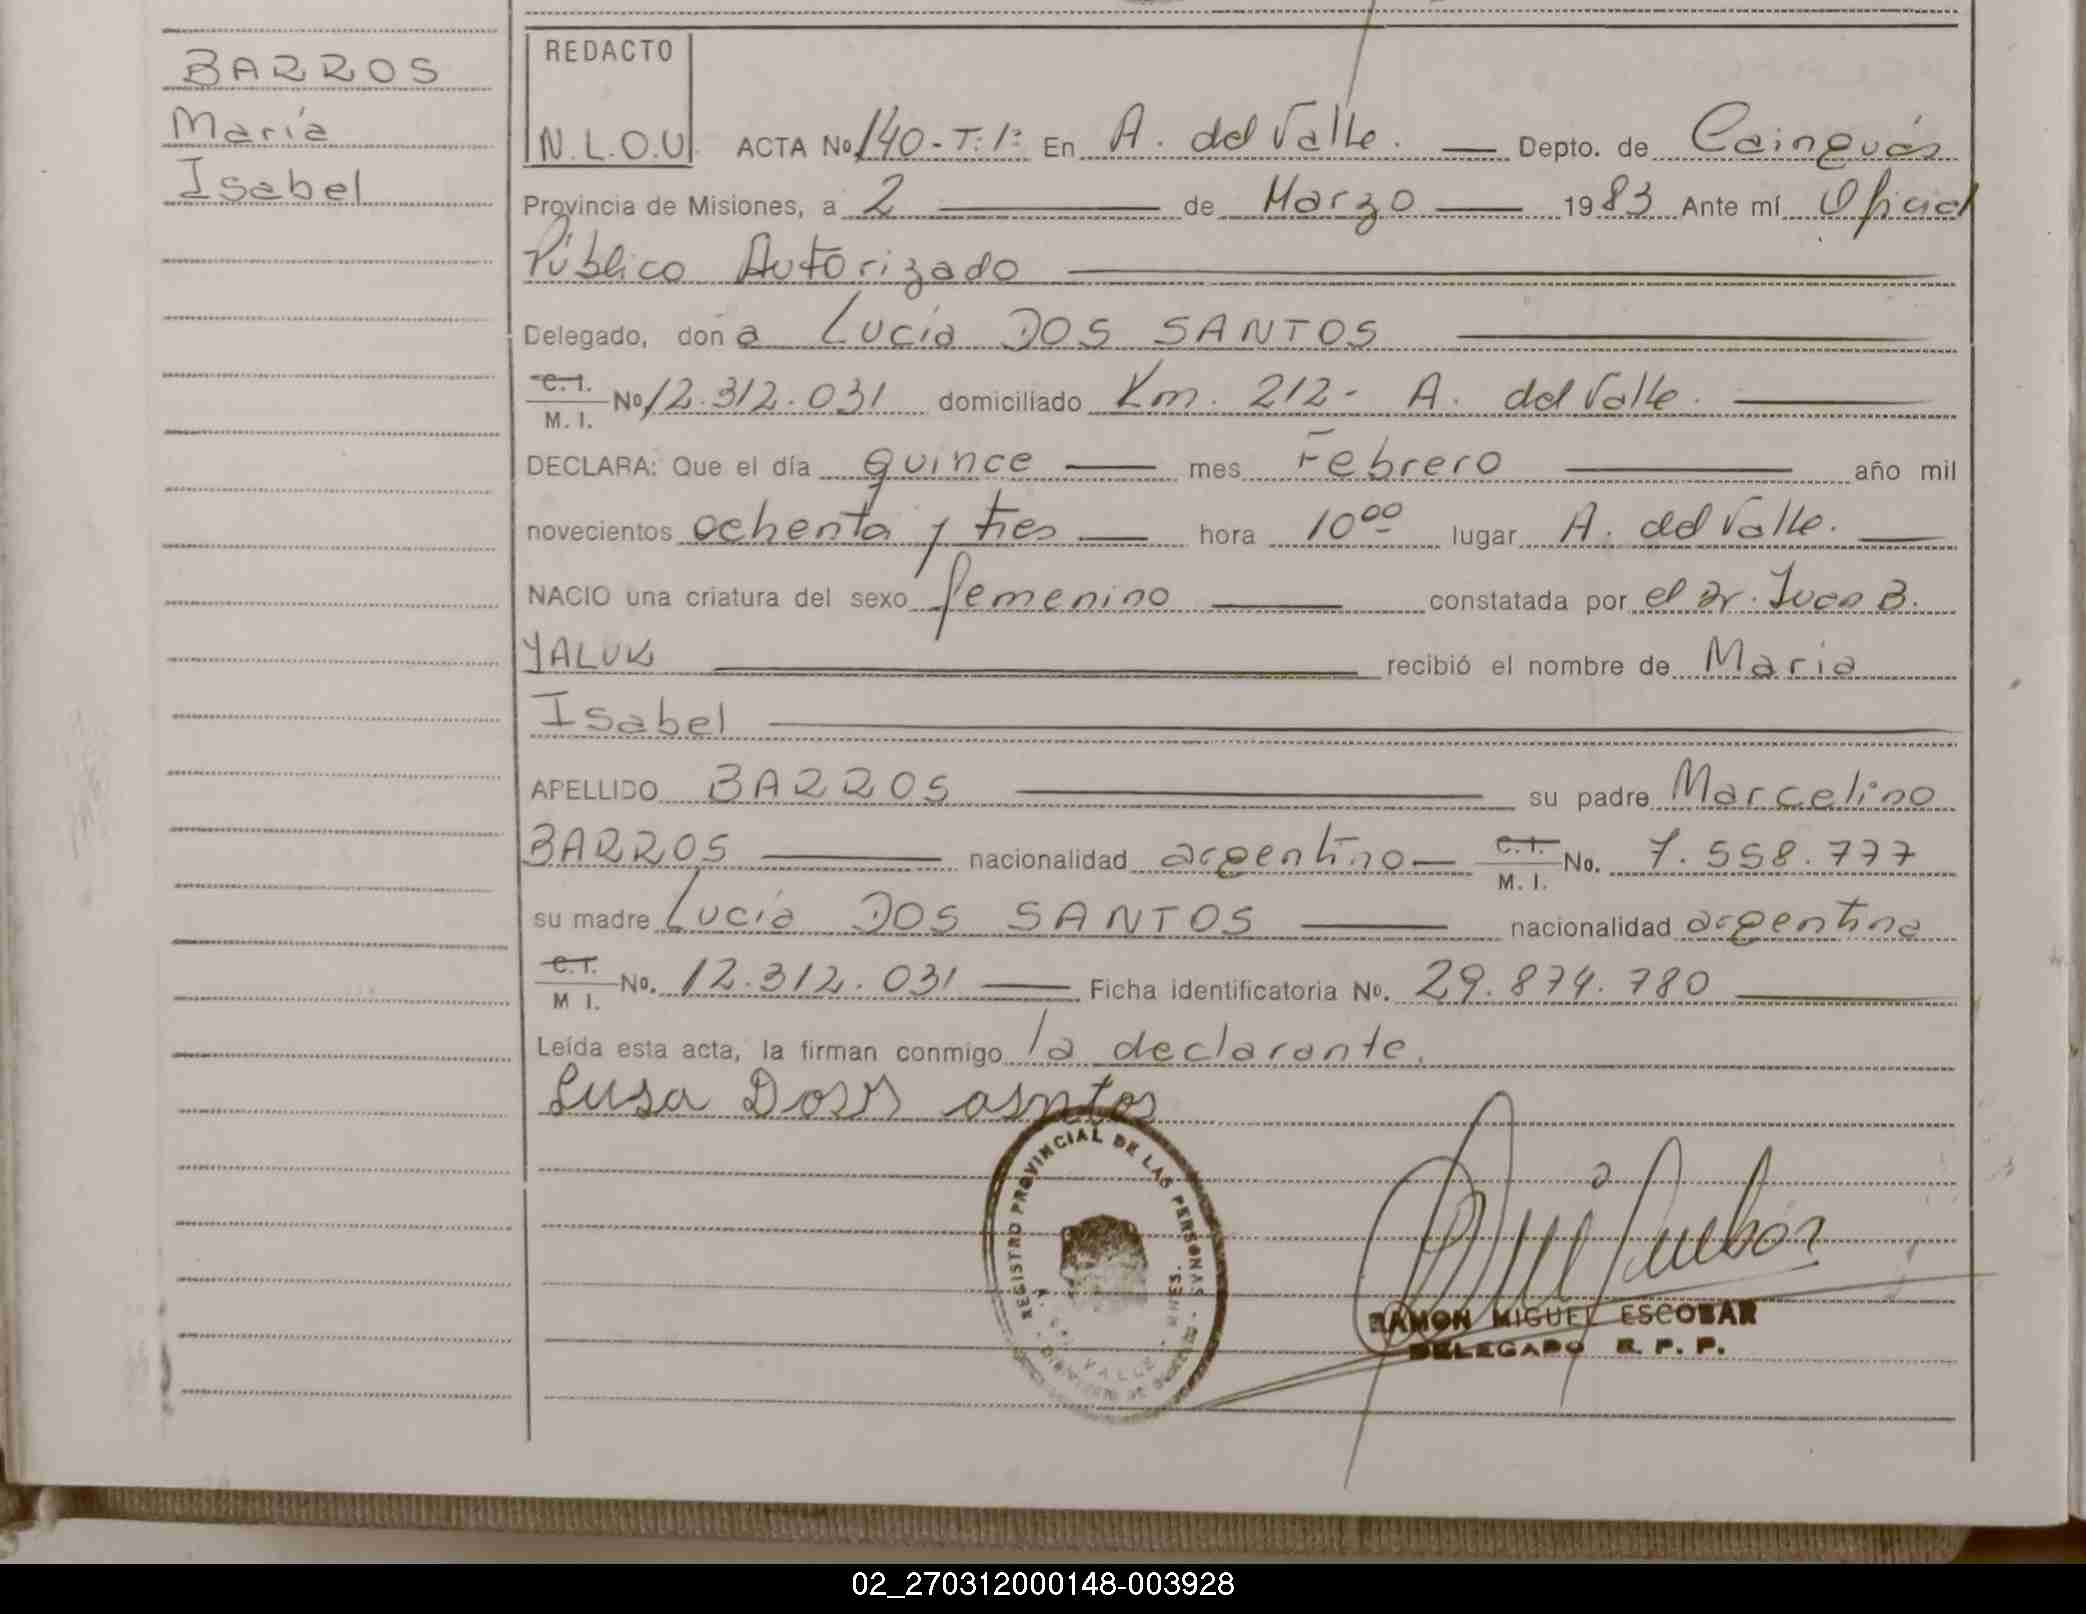 BARROS
María
Isabel
REDACTO
N.L.O.U. ACTA No 140-T:1: En A. del Valle. Depto. de Cainguás
Provincia de Misiones, a 2 de Marzo 1983 Ante mí Oficial
Público Autorizado
Delegado, don a Lucía DOS SANTOS
C.I. M.I. No 12.312.031 domiciliado Km. 212- A. del Valle.
DECLARA: Que el día quince mes Febrero año mil
novecientos ochenta y tres hora 10⁰⁰ lugar A. del Valle.
NACIO una criatura del sexo femenino constatada por el Dr. Juan B.
YALUK recibió el nombre de María
Isabel
APELLIDO BARROS su padre Marcelino
BARROS nacionalidad argentino C.I. M.I. No. 7.558.777
su madre Lucía DOS SANTOS nacionalidad argentina
C.I. M I. No. 12.312.031 Ficha identificatoria No. 29.874.780
Leída esta acta, la firman conmigo la declarante.
Lusa Doss asntos
REGISTRO PROVINCIAL DE LAS PERSONAS
A. del VALLE - MNES.
RAMON MIGUEL ESCOBAR
DELEGADO R. P. P.
02_270312000148-003928